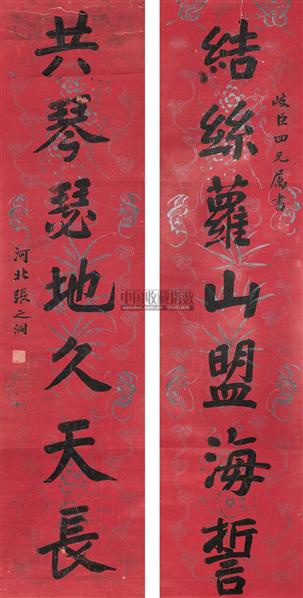 岐臣四兄属書
結絲蘿山盟海誓
共琴瑟地久天長
河北張之洞
中国收藏指数